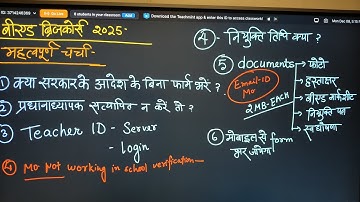 ID: 3714246369
6 students in your classroom
Download the Teachmint app & enter this ID to access classroom!
Mon Dec 08,
बीएड ब्रिजकोर्स 2025
महत्वपूर्ण चर्चा
① क्या सरकार के आदेश के बिना फार्म भरें ?
② प्रधानाध्यापक सत्यापित न करें तो ?
③ Teacher ID - Server
- Login
④ Mo Not working in school verification
④ - नियुक्ति तिथि क्या ?
⑤ documents
Email-ID
Mo
2MB-EACH
फोटो
हस्ताक्षर
बीएड मार्कशीट
नियुक्ति पत्र
स्वघोषणा
⑥ मोबाइल से form
भर जायेगा